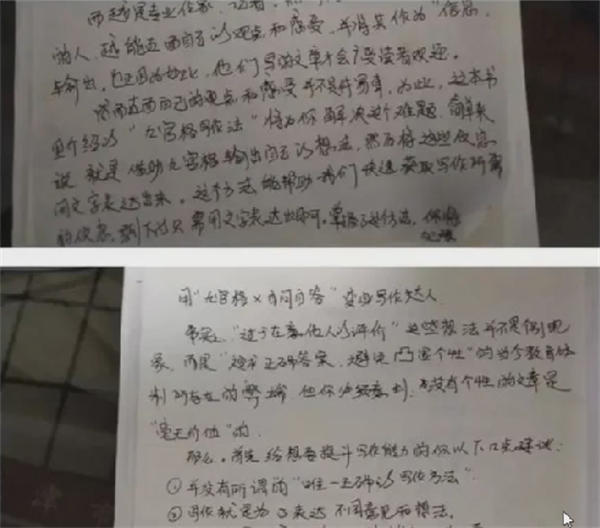 而越是专业作家、记者
的人，越能直面自己的观点和感受，并将其作为“信息”
与输出，也正因为如此，他们写的文章才会广受读者欢迎。
然而直面自己的观点和感受并不是件易事，为此，这本书
里介绍的“九宫格写作法”将为你解决这个难题。简单来
说，就是借助九宫格输出自己的想法，然后将这些信息
用文字表达出来。这个方法能帮助我们快速获取写作所需
的信息，剩下的只需用文字表达出即可。掌握了这个方法，你将
用“九宫格×自问自答”变成写作达人
事实上，“过于在意他人的评价”这些想法并不是个别现
象，而是“追求正确答案，避免凸显个性”的当今教育体
制所存在的弊端。但你必须意识到，没有个性的文章是
“毫无价值”的。
那么，首先给想要提升写作能力的你以下几点建议：
①并没有所谓的“唯一正确的写作方法”。
②写作就是为了表达不同意见和想法。